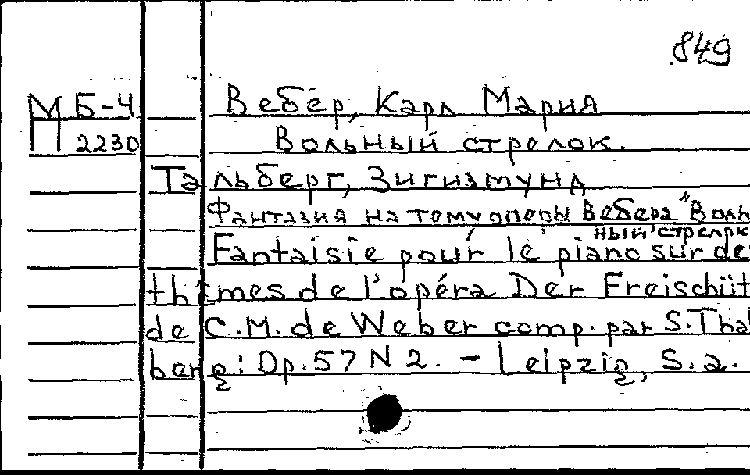 849
М Б-4 Вебер, Карл Мария
П 2230 Вольный стрелок.
Тальберг, Зигизмунд
Фантазия на тему оперы Вебера "Воль
ный стрелок
Fantaisie pour le piano sur de
thèmes de l'opéra Der Freischüt
de C.M. de Weber comp. par S. Thal
berg: Op. 57 N 2. - Leipzig, S.a.